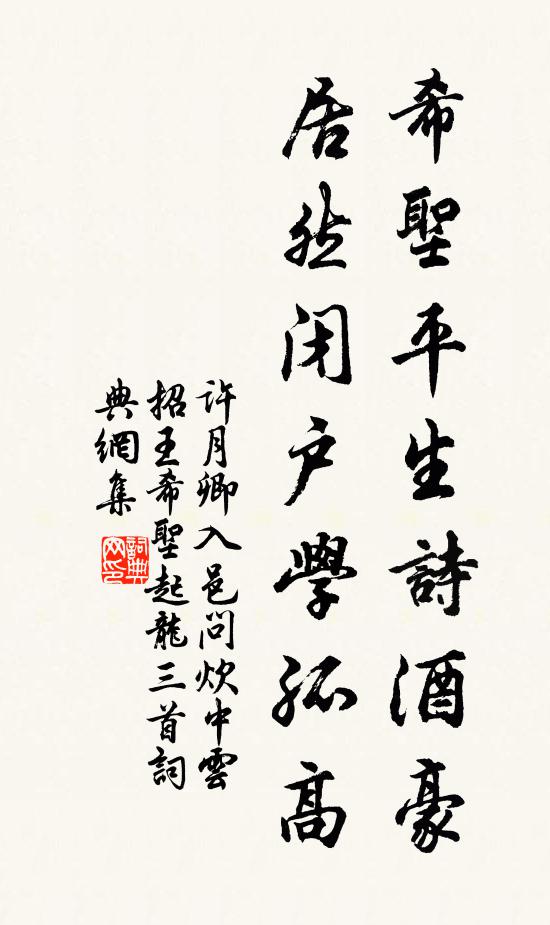 希聖平生詩酒豪
居然閉户學孤高
許月卿入邑問炊中雲
招王希聖起龍三首詞
典網集
詞典
网印